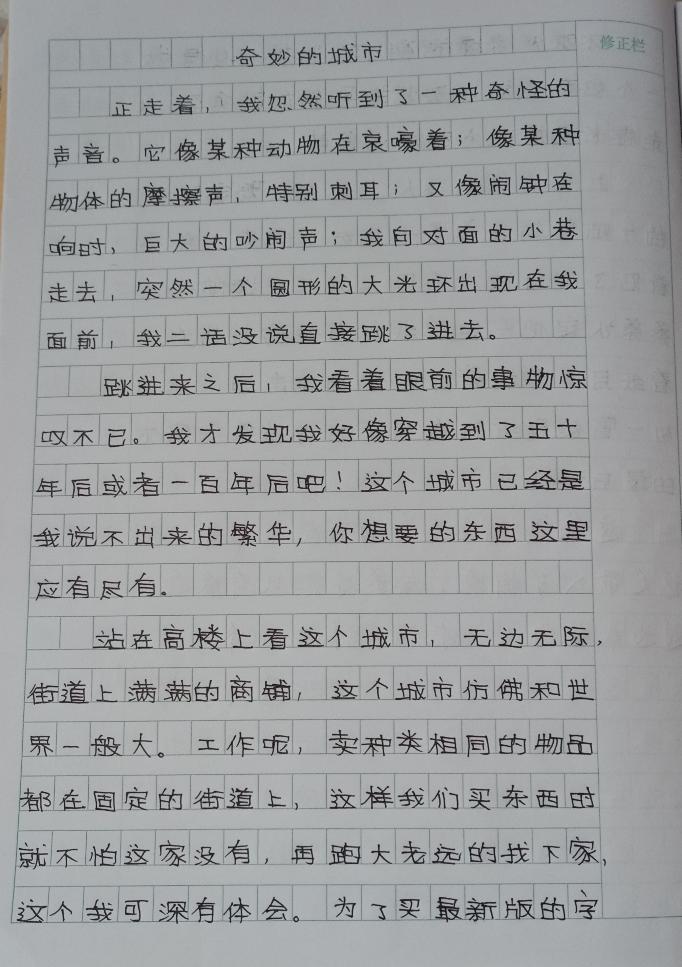 修正栏
奇妙的城市
正走着，我忽然听到了一种奇怪的
声音。它像某种动物在哀嚎着；像某种
物体的摩擦声，特别刺耳；又像闹钟在
响时，巨大的吵闹声；我向对面的小巷
走去，突然一个圆形的大光环出现在我
面前，我二话没说直接跳了进去。
跳进来之后，我看着眼前的事物惊
叹不已。我才发现我好像穿越到了五十
年后或者一百年后吧！这个城市已经是
我说不出来的繁华，你想要的东西这里
应有尽有。
站在高楼上看这个城市，无边无际，
街道上满满的商铺，这个城市仿佛和世
界一般大。工作呢，卖种类相同的物品
都在固定的街道上，这样我们买东西时
就不怕这家没有，再跑大老远的找下家，
这个我可深有体会。为了买最新版的字